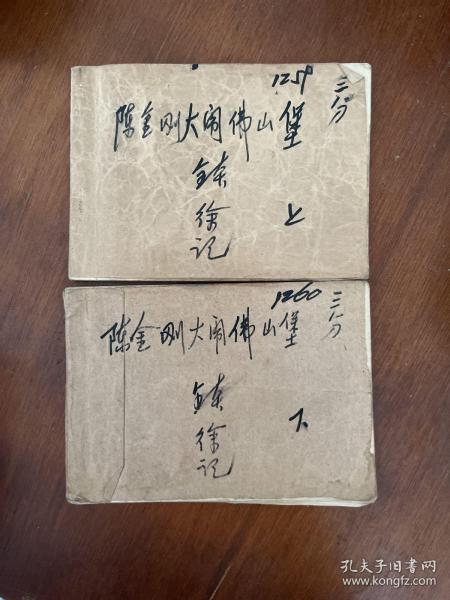 1259
三分
陈金刚大闹佛山堡
上
徐记
1260
三分
陈金刚大闹佛山堡
下
徐记
孔夫子旧书网
www.kongfz.com